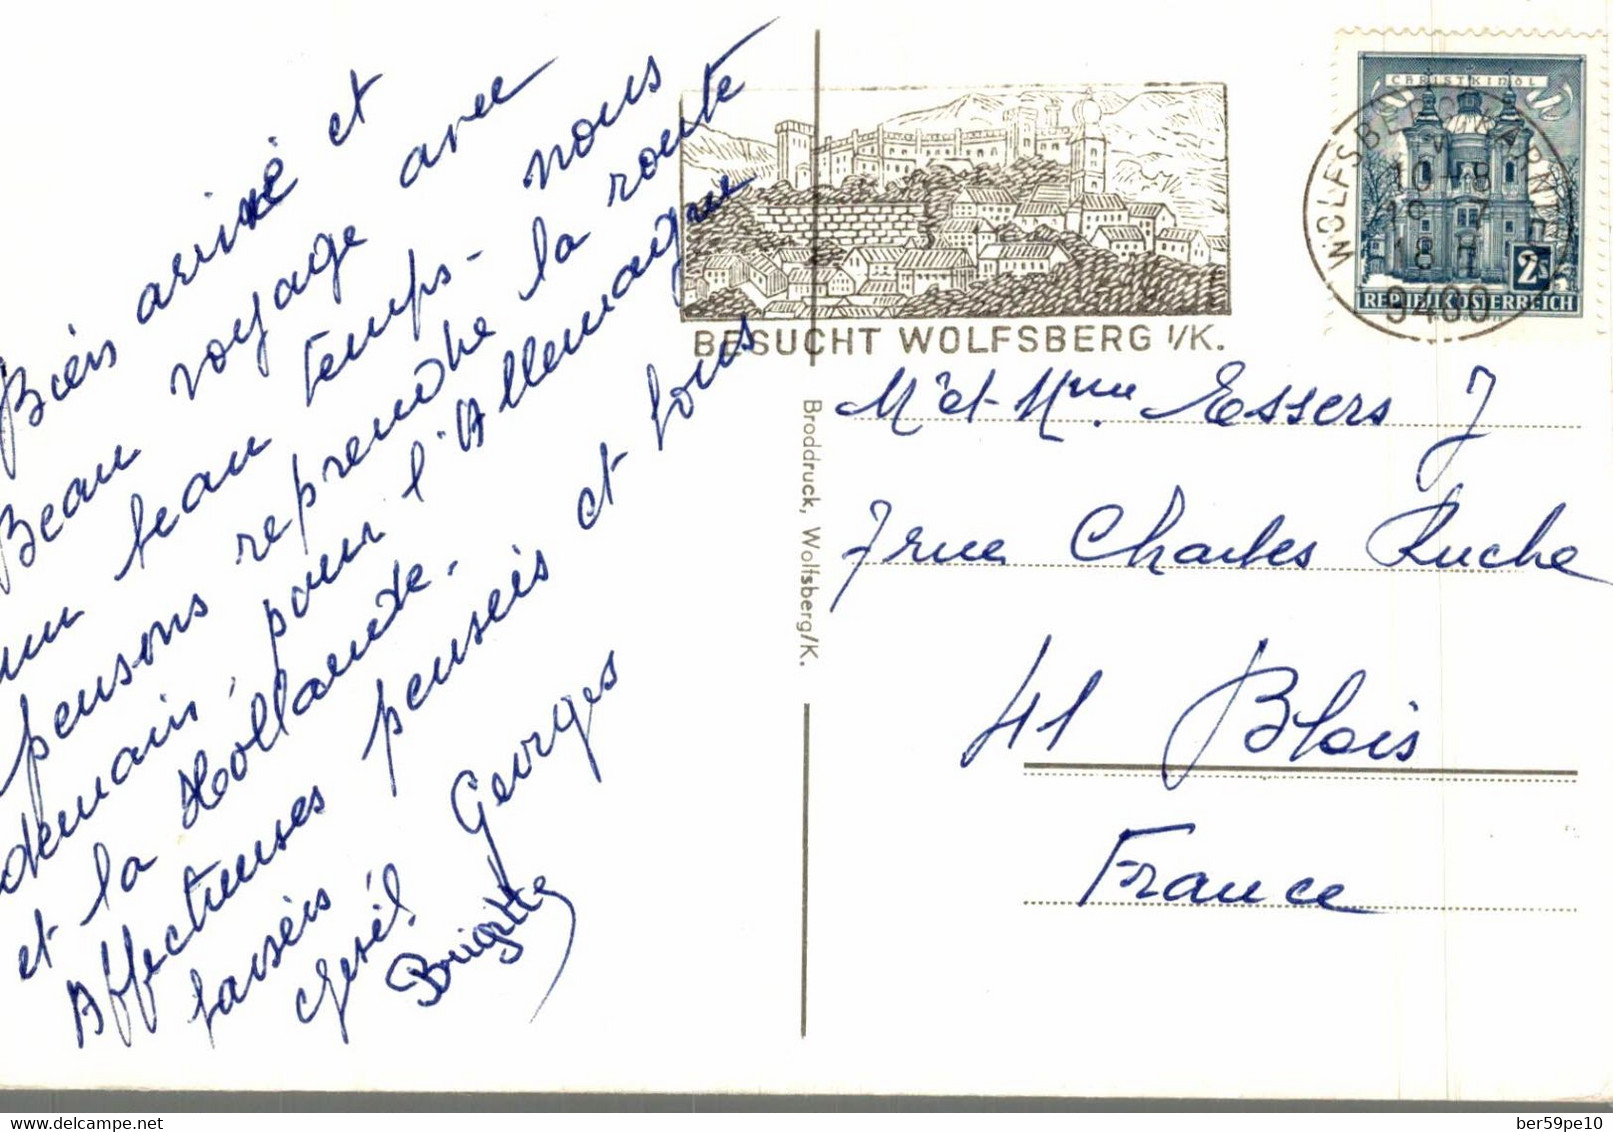 Bien arrivé et
Beau voyage avec
un beau temps - nous
pensons reprendre la route
demain, pour l'Allemaigne
et la Hollande.
Affectueuses penseés et tous
Georges
Brigitte
BESUCHT WOLFSBERG I/K.
CHRISTKINDL
2S
REPUBLIK ÖSTERREICH
WOLFSBERG KÄRNTEN
18 H
9400
Broddruck, Wolfsberg/K.
Mr et Mme Essers J
7 rue Charles Ruche
41 Blois
France
delcampe.net
ber59pe10